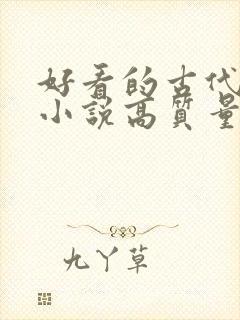 好看的古代
小説高質量
九丫草